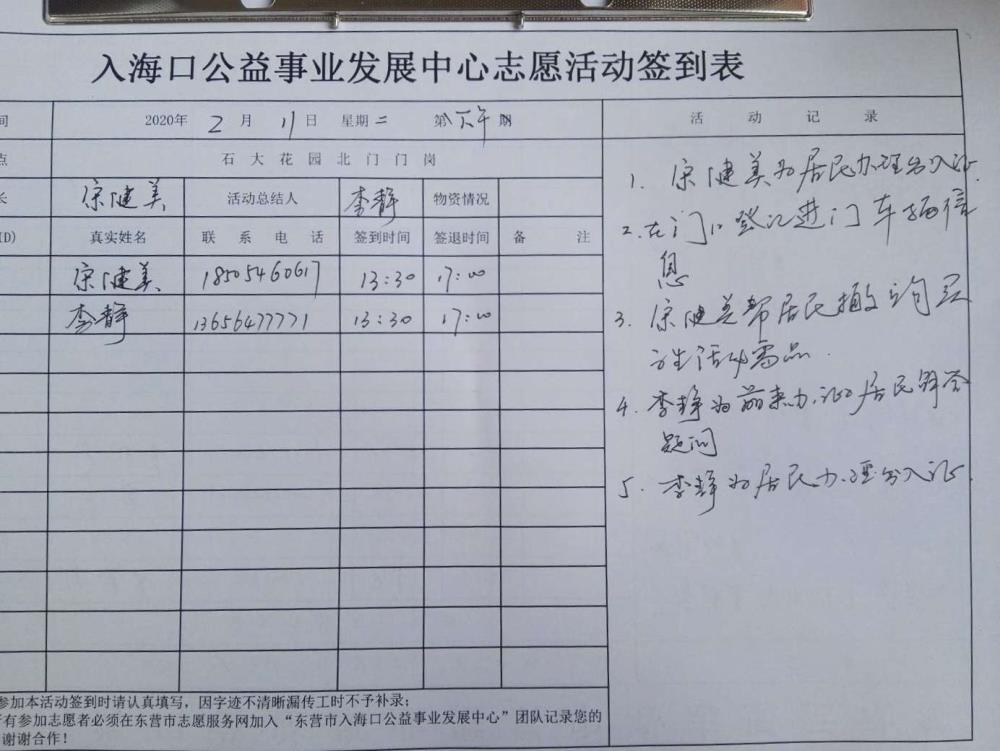 入海口公益事业发展中心志愿活动签到表
间 2020年 2 月 11 日 星期二 第 下午 期 活动记录
点 石大花园北门门岗
长 宋健美 活动总结人 李静 物资情况
ID) 真实姓名 联系电话 签到时间 签退时间 备注
宋健美 18505460617 13:30 17:00
李静 13656477771 13:30 17:00
1. 宋健美为居民办理出入证.
2. 在门口登记进门车辆信
息
3. 宋健美帮居民 询问买
生活必需品.
4. 李静为前来办证的居民解答
疑问
5. 李静为居民办理出入证.
参加本活动签到时请认真填写，因字迹不清晰漏传工时不予补录；
有参加志愿者必须在东营市志愿服务网加入“东营市入海口公益事业发展中心”团队记录您的
谢谢合作！